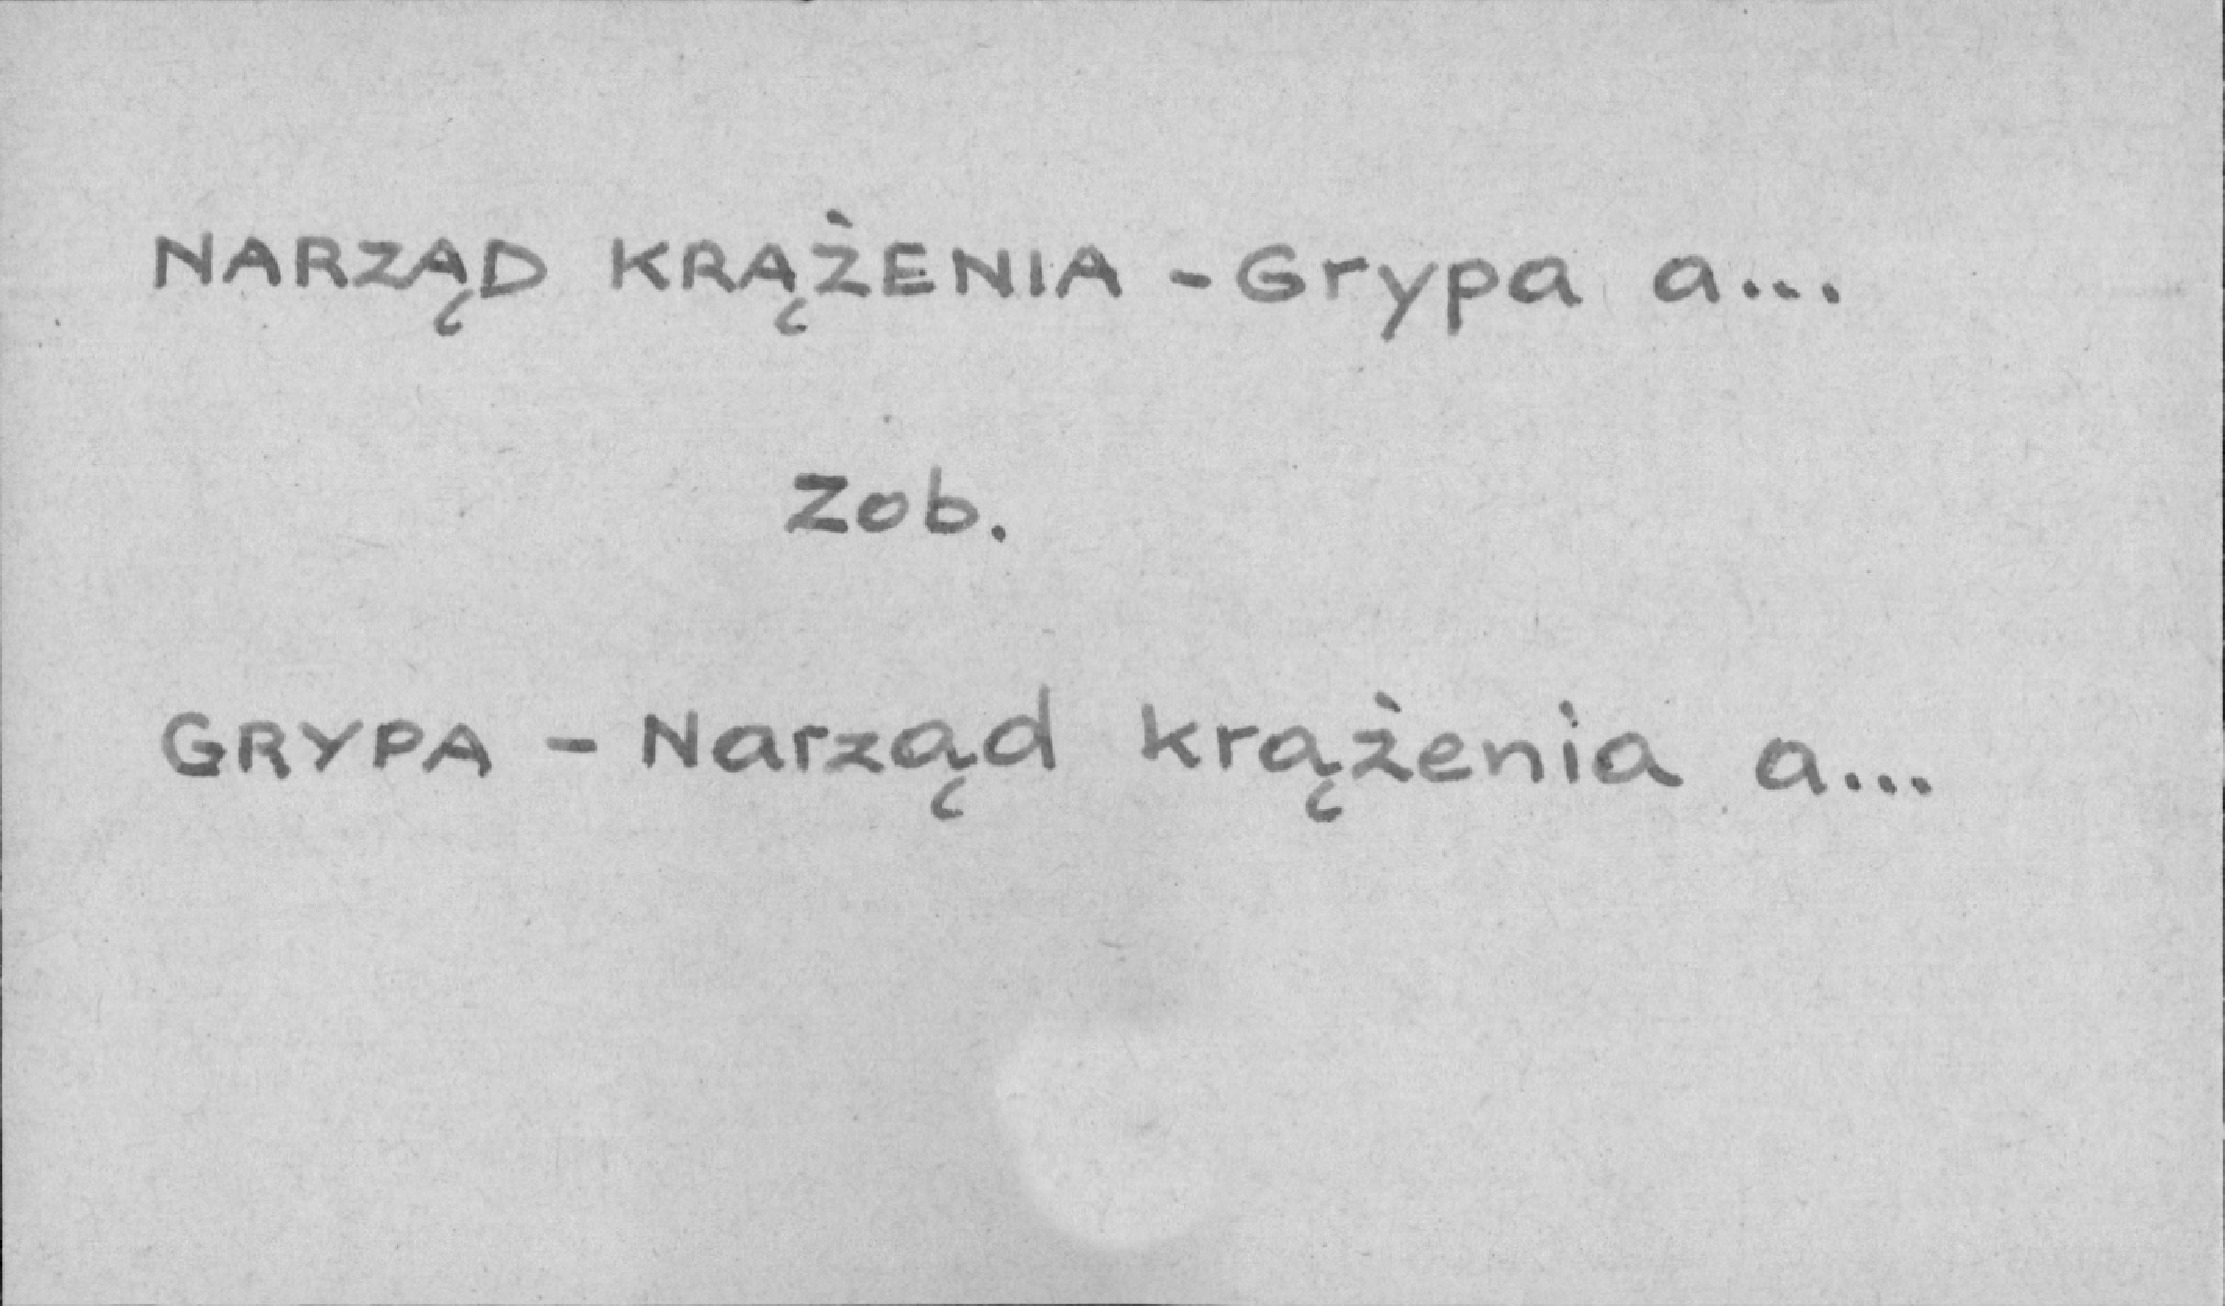 NARZĄD KRĄŻENIA - Grypa a...
Zob.
GRYPA - Narząd krążenia a...